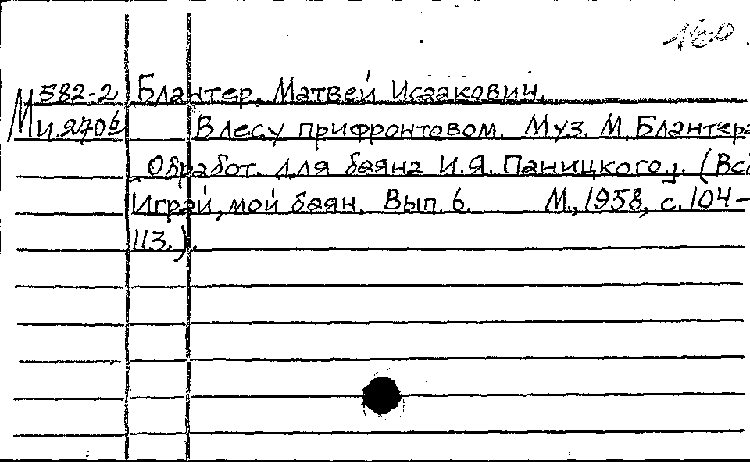 160
М 582-2 Блантер, Матвей Исаакович.
И 2706 В лесу прифронтовом. Муз. М. Блантера
Обработ. для баяна И.Я. Паницкого. (В сб
Играй, мой баян. Вып. 6. М., 1958, с. 104-
113.).